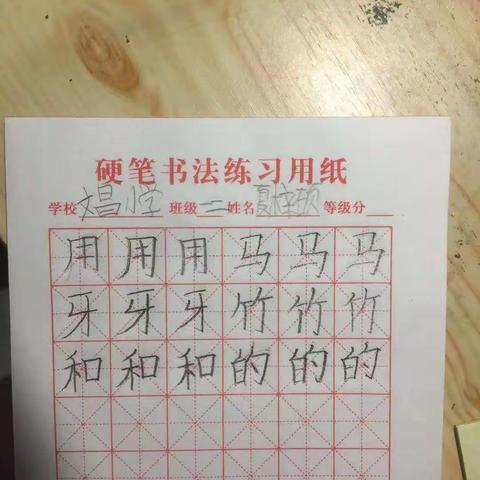 硬笔书法练习用纸
学校文昌小学 班级二 姓名夏梓硕 等级分
用用用马马马
牙牙牙竹竹竹
和和和的的的